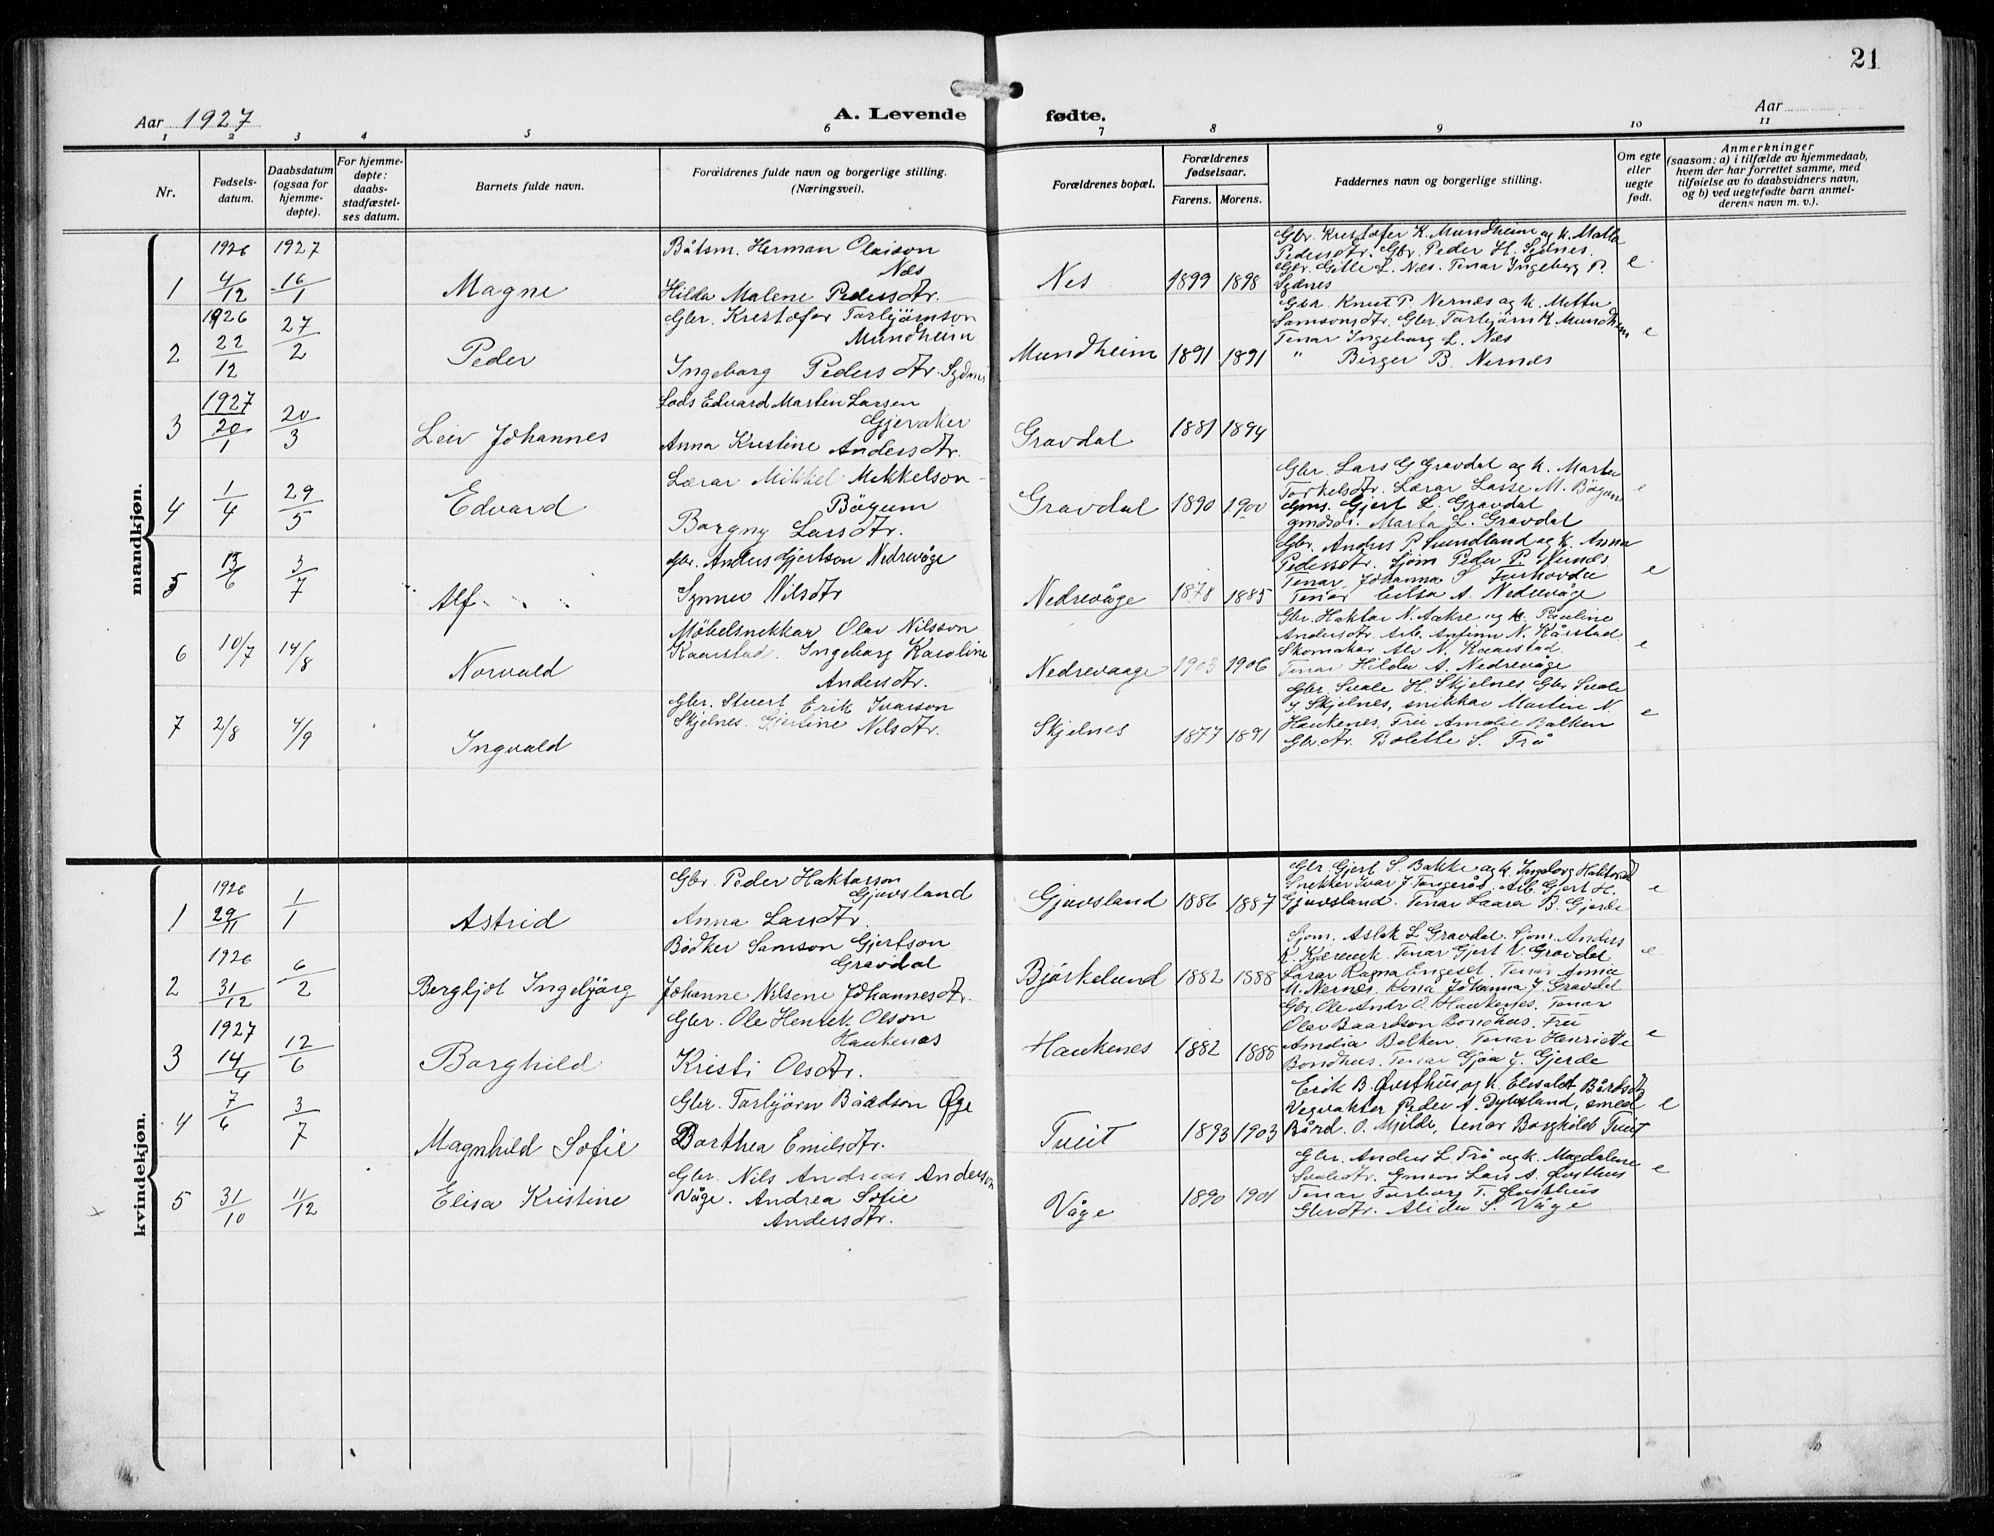 21
Aar 1927
A. Levende fødte.
Aar
1 2 3 4 5 6 7 8 9 10 11
Nr.
Fødsels-
datum.
Daabsdatum
(ogsaa for
hjemme-
døpte).
For hjemme-
døpte:
daabs-
stadfæstel-
ses datum.
Barnets fulde navn.
Forældrenes fulde navn og borgerlige stilling.
(Næringsvei).
Forældrenes bopæl.
Forældrenes
fødselsaar.
Farens. Morens.
Faddernes navn og borgerlige stilling.
Om egte
eller
uegte
født.
Anmerkninger
(saasom: a) i tilfælde av hjemmedaab,
hvem der har forrettet samme, med
tilføielse av to daabsvidners navn,
og b) ved uegtefødte barn anmel-
derens navn m. v.).
mandkjøn.
1 1926 4/12 1927 16/1 Magne
Båtsm. Herman Olaison
Næs
Hilda Malene Pedersdtr.
Nes 1899 1898
Gbr. Kristofer K. Mundheim og k. Matla
Pedersdtr. Gbr. Peder H. Sydnes.
Gbr. Gitle L. Næs. Tenar Ingeborg P.
Sydnes
e
2 1926 22/12 27/2 Peder
Gbr. Kristofer Torbjørnson
Mundheim
Ingeborg Pedersdtr. Sydnes
Mundheim 1891 1891
Gbr. Knut P. Nernes og k. Metta
Samsonsdtr. Gbr. Torbjørn K. Mundheim
Tenar Ingeborg L. Næs
" Birger B. Nernes
e
3 1927 20/1 20/3 Leiv Johannes
Lods Edvard Martin Larsen
Gjeraker
Anna Kristine Andersdtr.
Gravdal 1881 1894
4 1/4 29/5 Edvard
Lærar Mikkel Mikkelson
Bøgum
Borgny Larsdtr.
Gravdal 1890 1900
Gbr. Lars G. Gravdal og k. Marta
Torkelsdtr. Lærar Lasse M. Bøgum
Gms. Gjert L. Gravdal
gmdsdr. Marta L. Gravdal
e
5 13/6 3/7 Alf
Gbr. Anders Gjertson Nedrevåge
Synnev Nilsdtr
Nedrevåge 1878 1885
Gbr. Anders P. Sundland og k. Anna
Pedersdtr. Sjøm. Peder P. Nernes
Tenar Johanna S. Furhovde
Tenar Eilsa A. Nedrevåge
e
6 10/7 14/8 Norvald
Møbelsnekkar Olav Nilsson
Kaarstad. Ingeborg Karoline
Andersdtr.
Nedrevaage 1903 1906
Gbr. Haktor N. Aakre og k. Pauline
Andersdtr. Arb. Anfinn N. Kårstad
Skomaker Alv N. Kaarstad.
Tenar Hilda A. Nedrevåge
e
7 2/8 4/9 Ingvald
Gbr. Stuert Erik Ivarson
Skjelnes. Gjertine Nilsdtr.
Skjelnes 1877 1891
Gbr. Svale H. Skjelnes. Gbr. Svale
J. Skjelnes, snikkar Marten N
Haukenes, Fru Amalie Balken
Gbrdtr. Bolette S. Trå
e
kvindekjøn.
1 1926 29/11 1/1 Astrid
Gbr. Peder Haktorson
Gjuvsland
Anna Larsdtr.
Gjuvsland 1886 1887
Gbr. Gjert S. Bakke og k. Ingeborg Haktorsdt
Snekker Ivar J. Tangerås. Arb. Gjert H.
Gjuvsland. Tenar Laara B. Gjerde
e
2 1926 31/12 6/2 Bergljot Ingebjørg
Bødker Samson Gjertson
Gravdal
Johanne Nilsene Johannesdtr.
Bjørkelund 1882 1888
Sjøm. Aslak L Gravdal. Sjøm. Anders
K. Kjærevik. Tenar Gjert V. Gravdal
Lærar Ragna Engeset. Tenar Annie
M. Nernes. Kona Johanna J. Gravdal
e
3 1927 14/4 12/6 Borghild
Gbr. Ole Henrik Olson
Haukenæs
Kristi Olsdtr.
Haukenes 1882 1888
Gbr. Ole Andr. O. Haukenes. Tenar
Olav Baardson Bondhus. Fru
Amalia Balken. Tenar Henriette
Bondhus. Tenar Gjøa J. Gjerde
e
4 7/6 3/7 Magnhild Sofie
Gbr. Torbjørn Båædson Øye
Dorthea Emilsdtr.
Tveit 1893 1903
Erik B. Øvsthus og k. Elisabet Bårdsdtr
Vegvakter Peder A. Dybsland, smed
Bård O. Mjelde, tenar Borghild Tveit
e
5 31/10 11/12 Elisa Kristine
Gbr. Nils Andreas Anderson
Våge. Andrea Sofie
Andersdtr.
Våge 1890 1901
Gbr. Anders L. Trå og k. Magdalene
Svaledtr. Gmson Lars A. Øvsthus
Tenar Torborg T. Øvsthus
Gbrdtr. Alida S. Våge
e